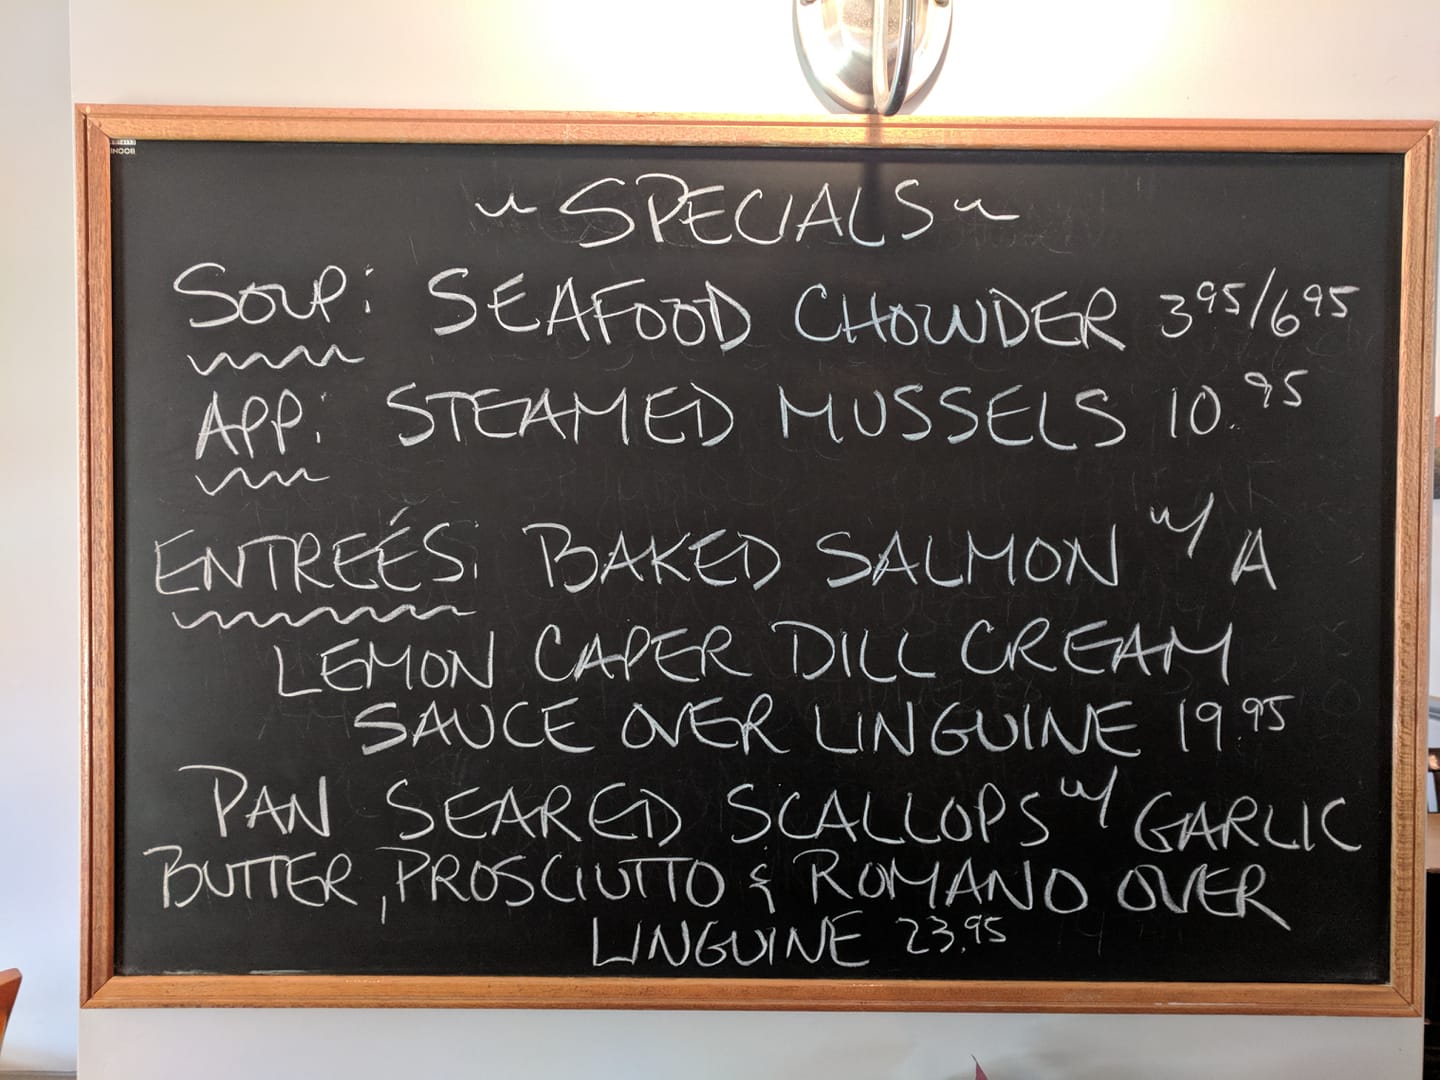 ~ SPECIALS ~
SOUP: SEAFOOD CHOWDER 3.95/6.95
APP: STEAMED MUSSELS 10.95
ENTREÉS: BAKED SALMON w/ A
LEMON CAPER DILL CREAM
SAUCE OVER LINGUINE 19.95
PAN SEARED SCALLOPS w/ GARLIC
BUTTER, PROSCIUTTO & ROMANO OVER
LINGUINE 23.95